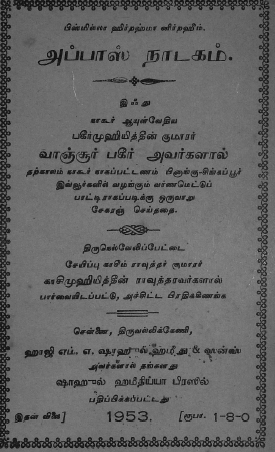 பிஸ்மில்லா ஹிர்றஹ்மா னிர்றஹீம்.
அப்பாஸ் நாடகம்.
இஃது
காகூர் ஆயுள்வேதிய
பகீர்முஹியித்தீன் குமாரர்
வாஞ்சூர் பகீர் அவர்களால்
தற்காலம் நாகூர் நாகப்பட்டணம் பினாங்கு-சிங்கப்பூர்
இவ்வூர்களில் வழங்கும் வர்ணமெட்டுப்
பாட்டிராகப்படிக்கு ஒருவாறு
சேகரஞ் செய்ததை.
திருநெல்வேலிப்பேட்டை
காசிம் ராவுத்தர் குமாரர்
காசிமுஹியித்தீன் ராவுத்தரவர்களால்
பார்வையிடப்பட்டு, அச்சிட்ட பிரதிக்கிணங்க
சென்னை, திருவல்லிக்கேணி,
ஹாஜி எம். ஏ. ஷாஹுல் ஹமீது & ஸன்ஸ்
அவர்களால் தங்களது
ஷாஹுல் ஹமீதிய்யா பிரஸில்
பதிப்பிக்கப்பட்டது
இதன் விலை] 1953. [ரூபா. 1-8-0